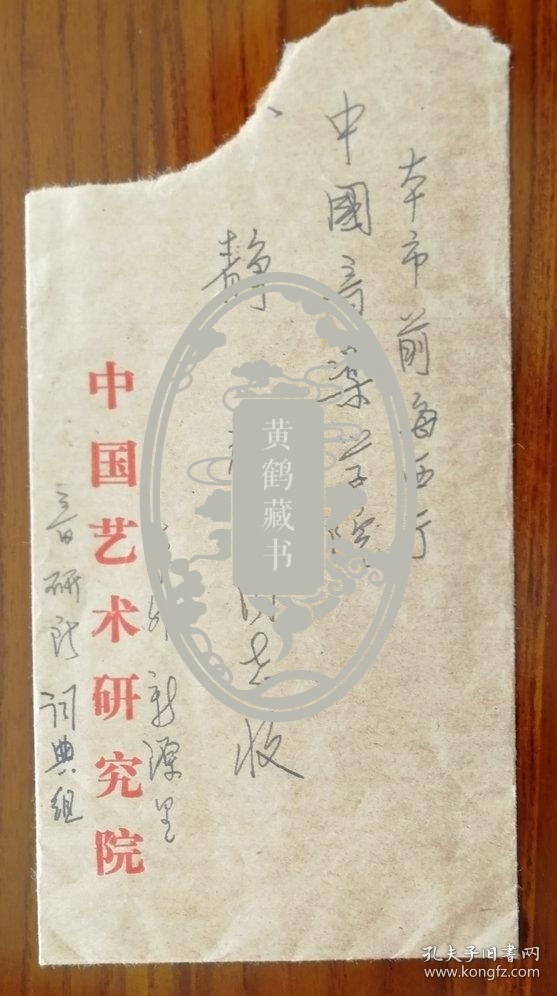 本市前海西街
中國音樂学院
静
同志收
新源里
中国艺术研究院
音研所词典组
黄鹤藏书
孔夫子旧书网
www.kongfz.com